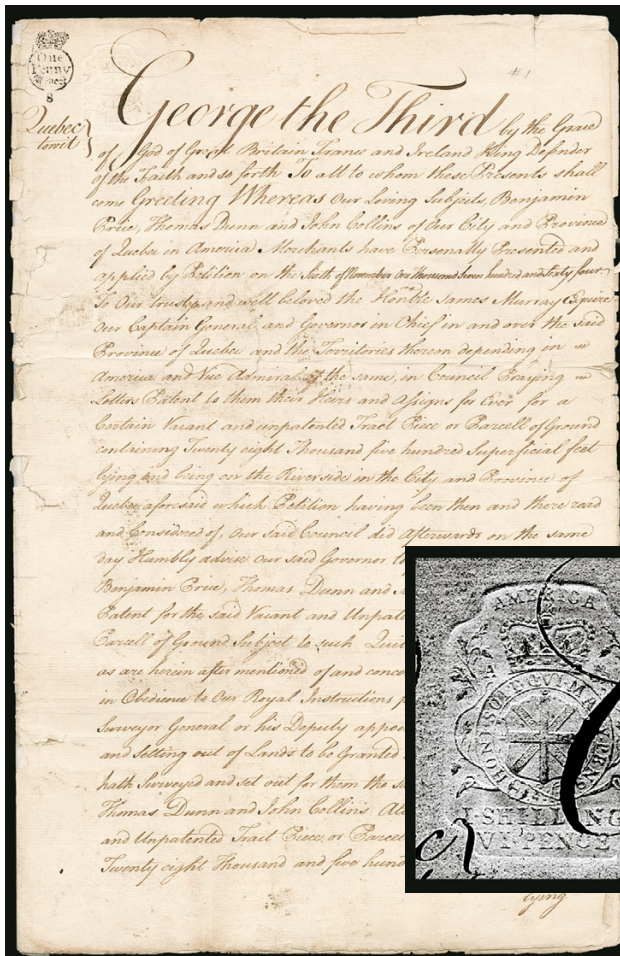 One
Penny
8
Quebec
to wit
#1
George the Third by the Grace
of God of Great Britain France and Ireland King Defender
of the Faith and so forth To all to whom these Presents shall
come Greeting Whereas Our Loving Subjects, Benjamin
Price, Thomas Dunn and John Collins of Our City and Province
of Quebec in America Merchants have Personally Presented and
applied by Petition on the Sixth of November One thousand seven hundred and sixty four
To Our trusty and well beloved the Honble James Murray Esquire
Our Captain General, and Governor in Chief in and over the said
Province of Quebec and the Territories thereon depending in
America and Vice Admiral of the same, in Council Praying
Letters Patent to them their Heirs and Assigns for Ever for a
Certain Vacant and unpatented Tract Piece or Parcell of Ground
containing Twenty eight Thousand five hundred Superficial feet
lying and being on the Riverside in the City and Province of
Quebec aforesaid which Petition having been then and there read
and Considered of, Our said Council did afterwards on the same
day Humbly advise Our said Governor to
Benjamin Price, Thomas Dunn and
Patent for the said Vacant and Unpate
Parcell of Ground Subject to such Quit
as are herein after mentioned of and conce
in Obedience to Our Royal Instructions
Surveyor General or his Deputy appoi
and Setting out of Lands to be Granted
hath Surveyed and set out for them the
Thomas Dunn and John Collins All
and Unpatented Tract Piece, or Parcel
Twenty eight Thousand and five hund
lying
AMERICA
HONI SOIT QUI MAL PENS
I·SHILLING
VI·PENCE